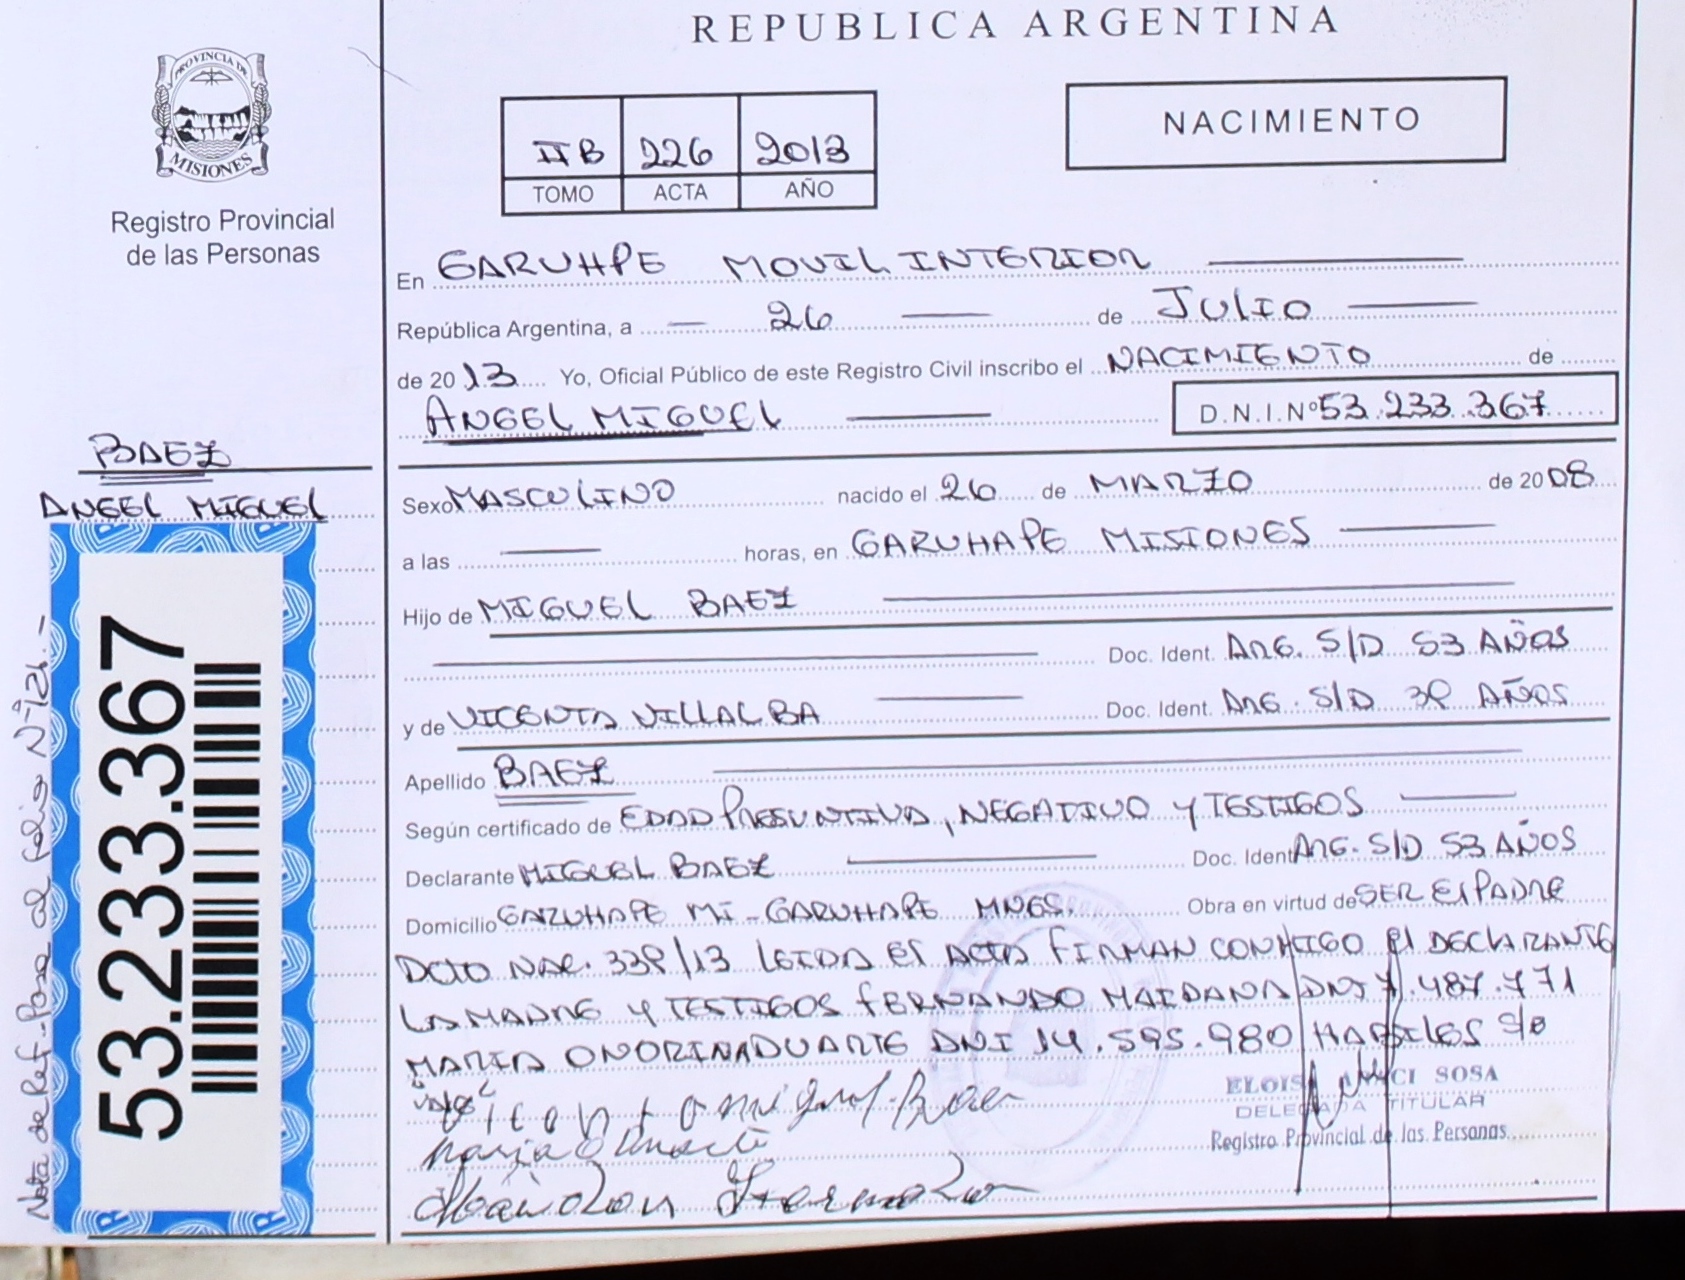 REPUBLICA ARGENTINA
PROVINCIA DE
MISIONES
Registro Provincial
de las Personas
IIB 226 2013
TOMO ACTA AÑO
NACIMIENTO
En GARUHPE MOVIL INTERIOR
República Argentina, a 26 de JULIO
de 2013 Yo, Oficial Público de este Registro Civil inscribo el NACIMIENTO de
ANGEL MIGUEL D.N.I.Nº 53.233.367
BAEZ
ANGEL MIGUEL
Sexo MASCULINO nacido el 26 de MARZO de 2008
a las horas, en GARUHAPE MISIONES
Hijo de MIGUEL BAEZ
Doc. Ident. ARG. S/D 53 AÑOS
y de VICENTA VILLALBA Doc. Ident. ARG. S/D 39 AÑOS
Apellido BAEZ
Según certificado de EDAD PRESUNTIVA, NEGATIVO Y TESTIGOS
Declarante MIGUEL BAEZ Doc. Ident ARG. S/D 53 AÑOS
Domicilio GARUHAPE MI-GARUHAPE MNES. Obra en virtud de SER El PADRE
DCTO NAC. 339/13 LEIDA El ACTA FIRMAN CONMIGO El DECLARANTE
LA MADRE Y TESTIGOS FERNANDO MAIDANA DNI 7.487.771
MARIA ONORINA DUARTE DNI 14.595.980 HABILES
ELOISA SOSA
DELEGADA TITULAR
Registro Provincial de las Personas
53.233.367
Nota de Ref. Pasa al folio Nº121.-